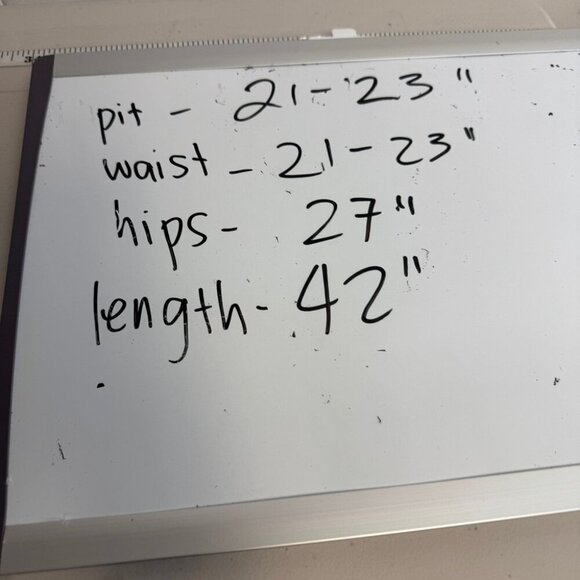 pit - 21-23"
waist - 21-23"
hips- 27"
length- 42"